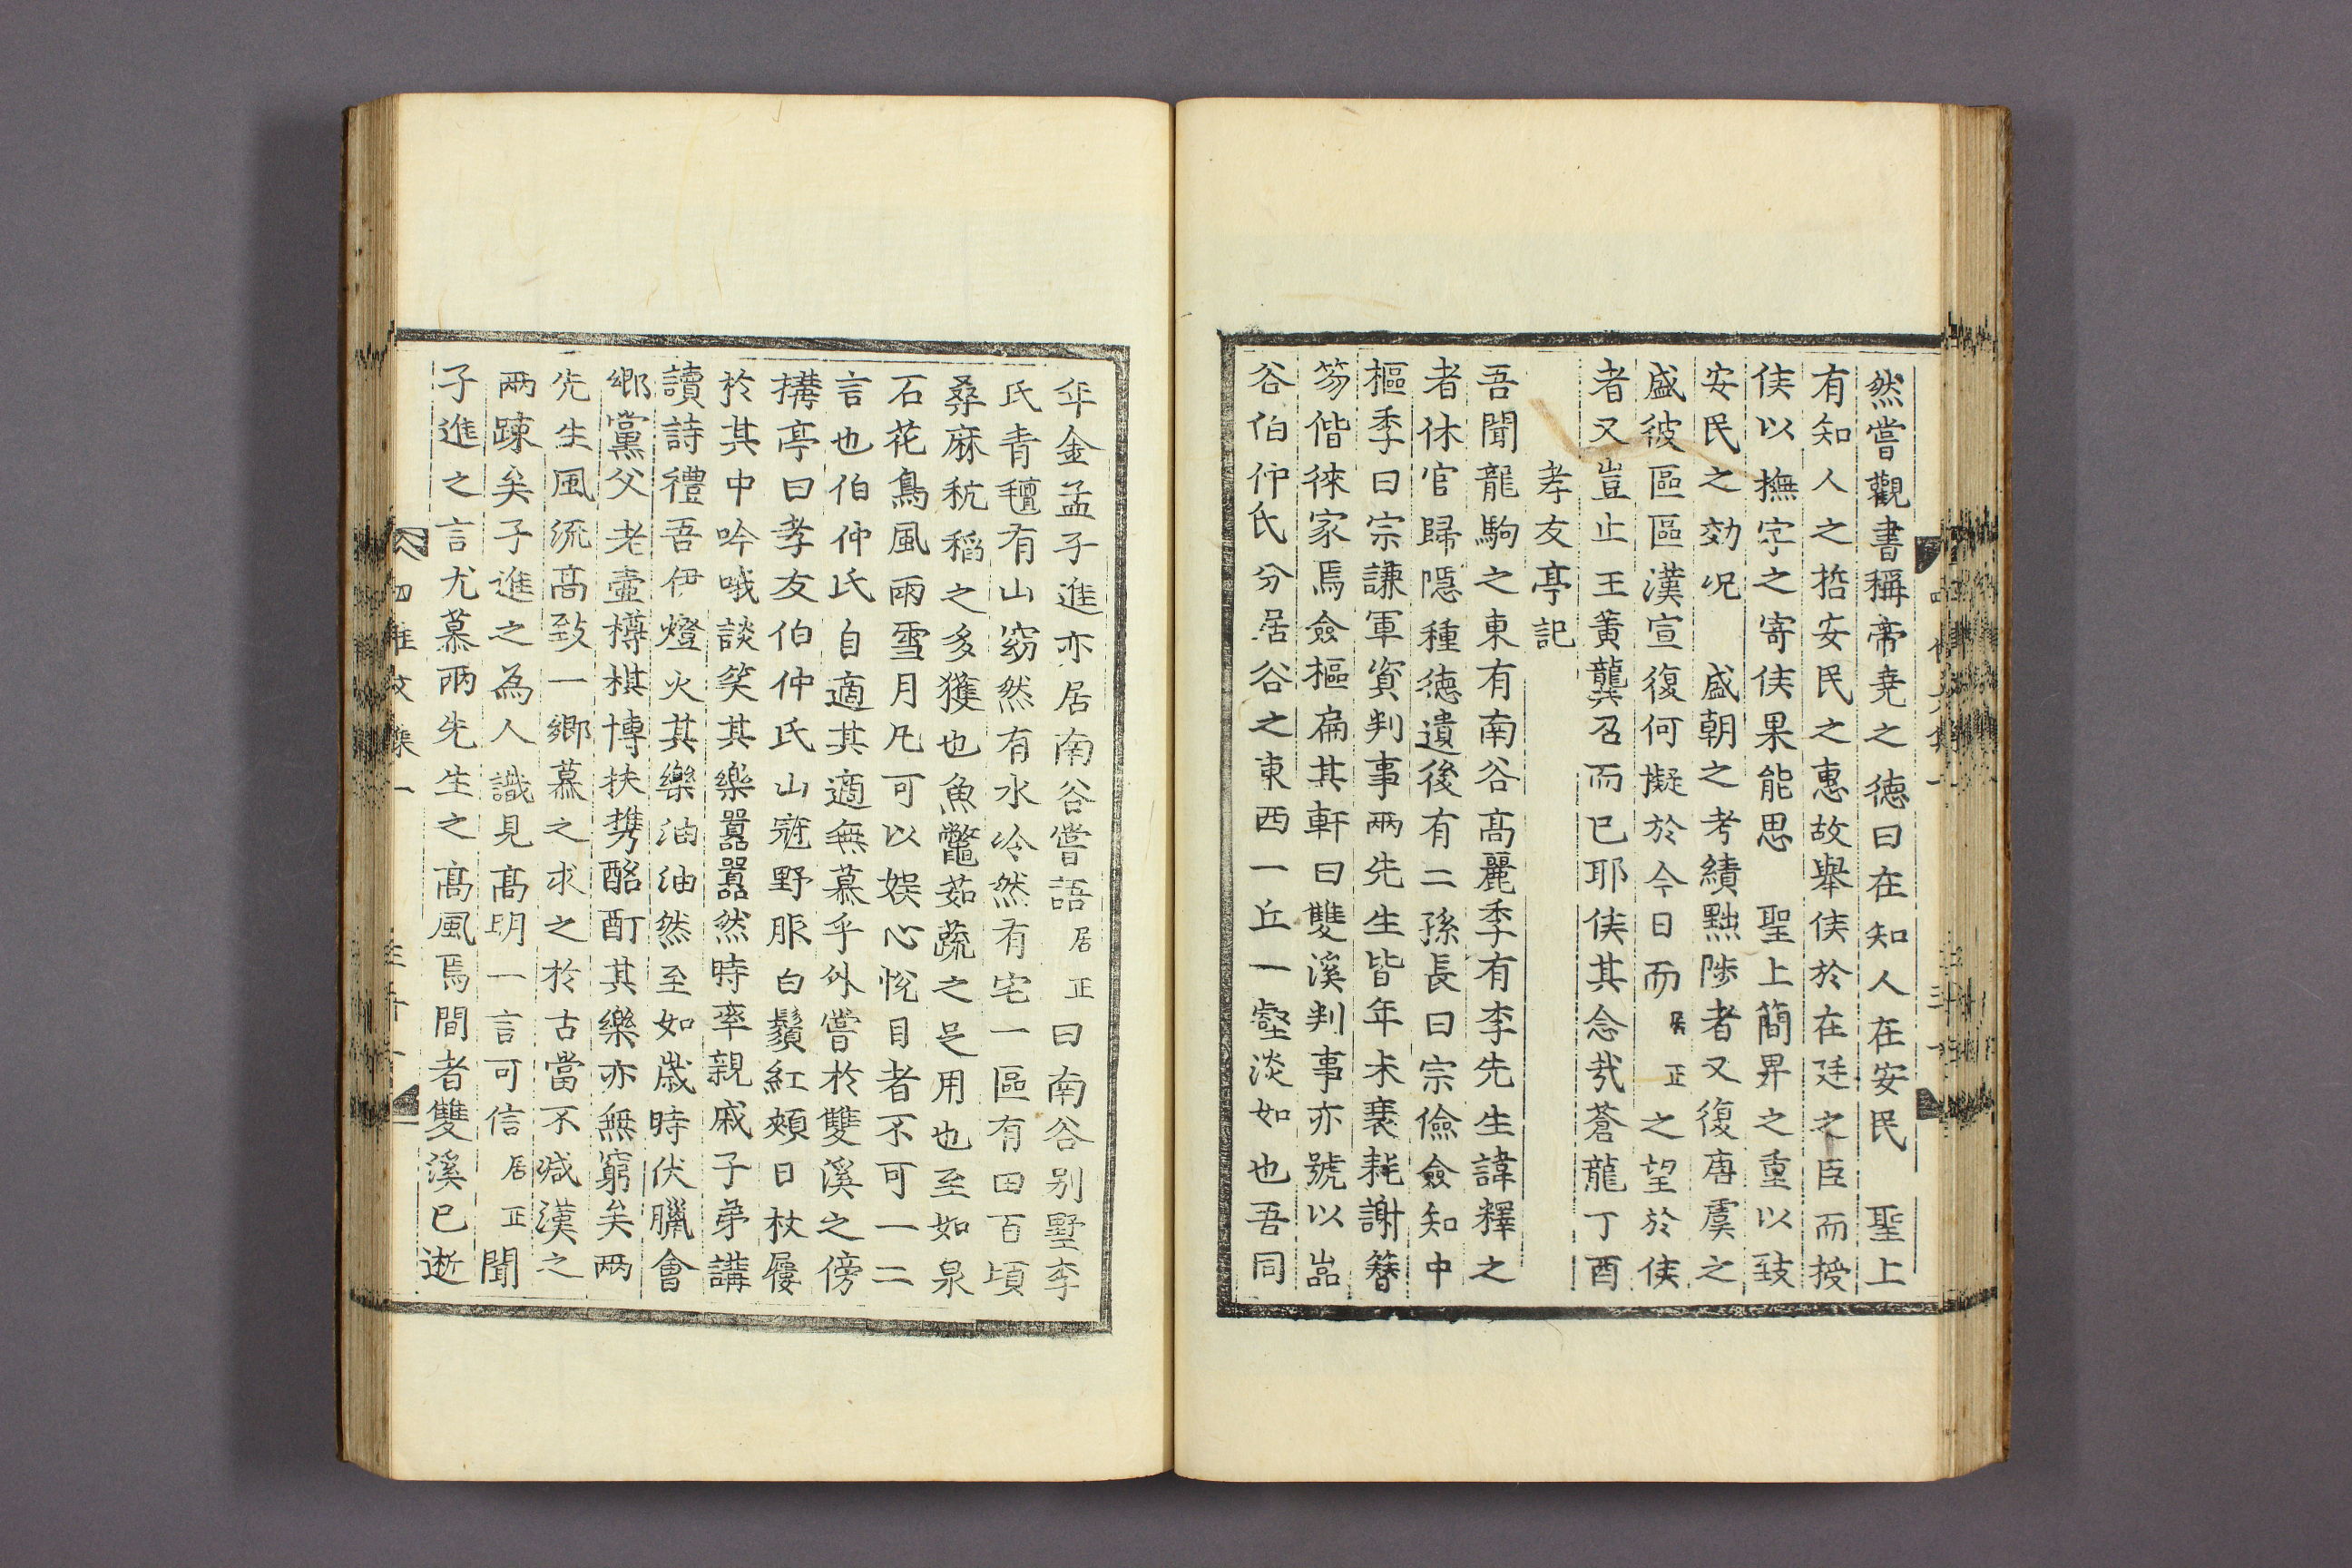 然嘗觀書稱帝堯之德曰在知人在安民　聖上
有知人之哲安民之惠故擧侯於在廷之臣而授
侯以撫字之寄侯果能思　聖上簡畀之重以致
安民之效况　盛朝之考績黜陟者又復唐虞之
盛彼區區漢宣復何擬於今日而居正之望於侯
者又豈止王黃龔召而已耶侯其念㢤蒼龍丁酉
孝友亭記
吾聞龍駒之東有南谷高麗季有李先生諱釋之
者休官歸隱種德遺後有二孫長曰宗儉僉知中
樞季曰宗謙軍資判事兩先生皆年未衰耗謝簪
笏偕徠家焉僉樞扁其軒曰雙溪判事亦號以嵓
谷伯仲氏分居谷之東西一丘一壑淡如也吾同
年金孟子進亦居南谷嘗語居正曰南谷別墅李
氏青氊有山窈然有水泠然有宅一區有田百頃
桑麻秔稻之多獲也魚鼈茹蔬之足用也至如泉
石花鳥風雨雪月凡可以娛心悅目者不可一二
言也伯仲氏自適其適無慕乎外嘗於雙溪之傍
搆亭曰孝友伯仲氏山冠野服白鬚紅頰日杖屨
於其中吟哦談笑其樂囂囂然時率親戚子弟講
讀詩禮吾伊燈火其樂油油然至如歲時伏臘會
鄉黨父老壷樽棋博扶携酩酊其樂亦無窮矣兩
先生風流高致一鄉慕之求之於古當不减漢之
兩踈矣子進之為人識見高明一言可信居正聞
子進之言尤慕兩先生之高風焉間者雙溪已逝
四佳文集一